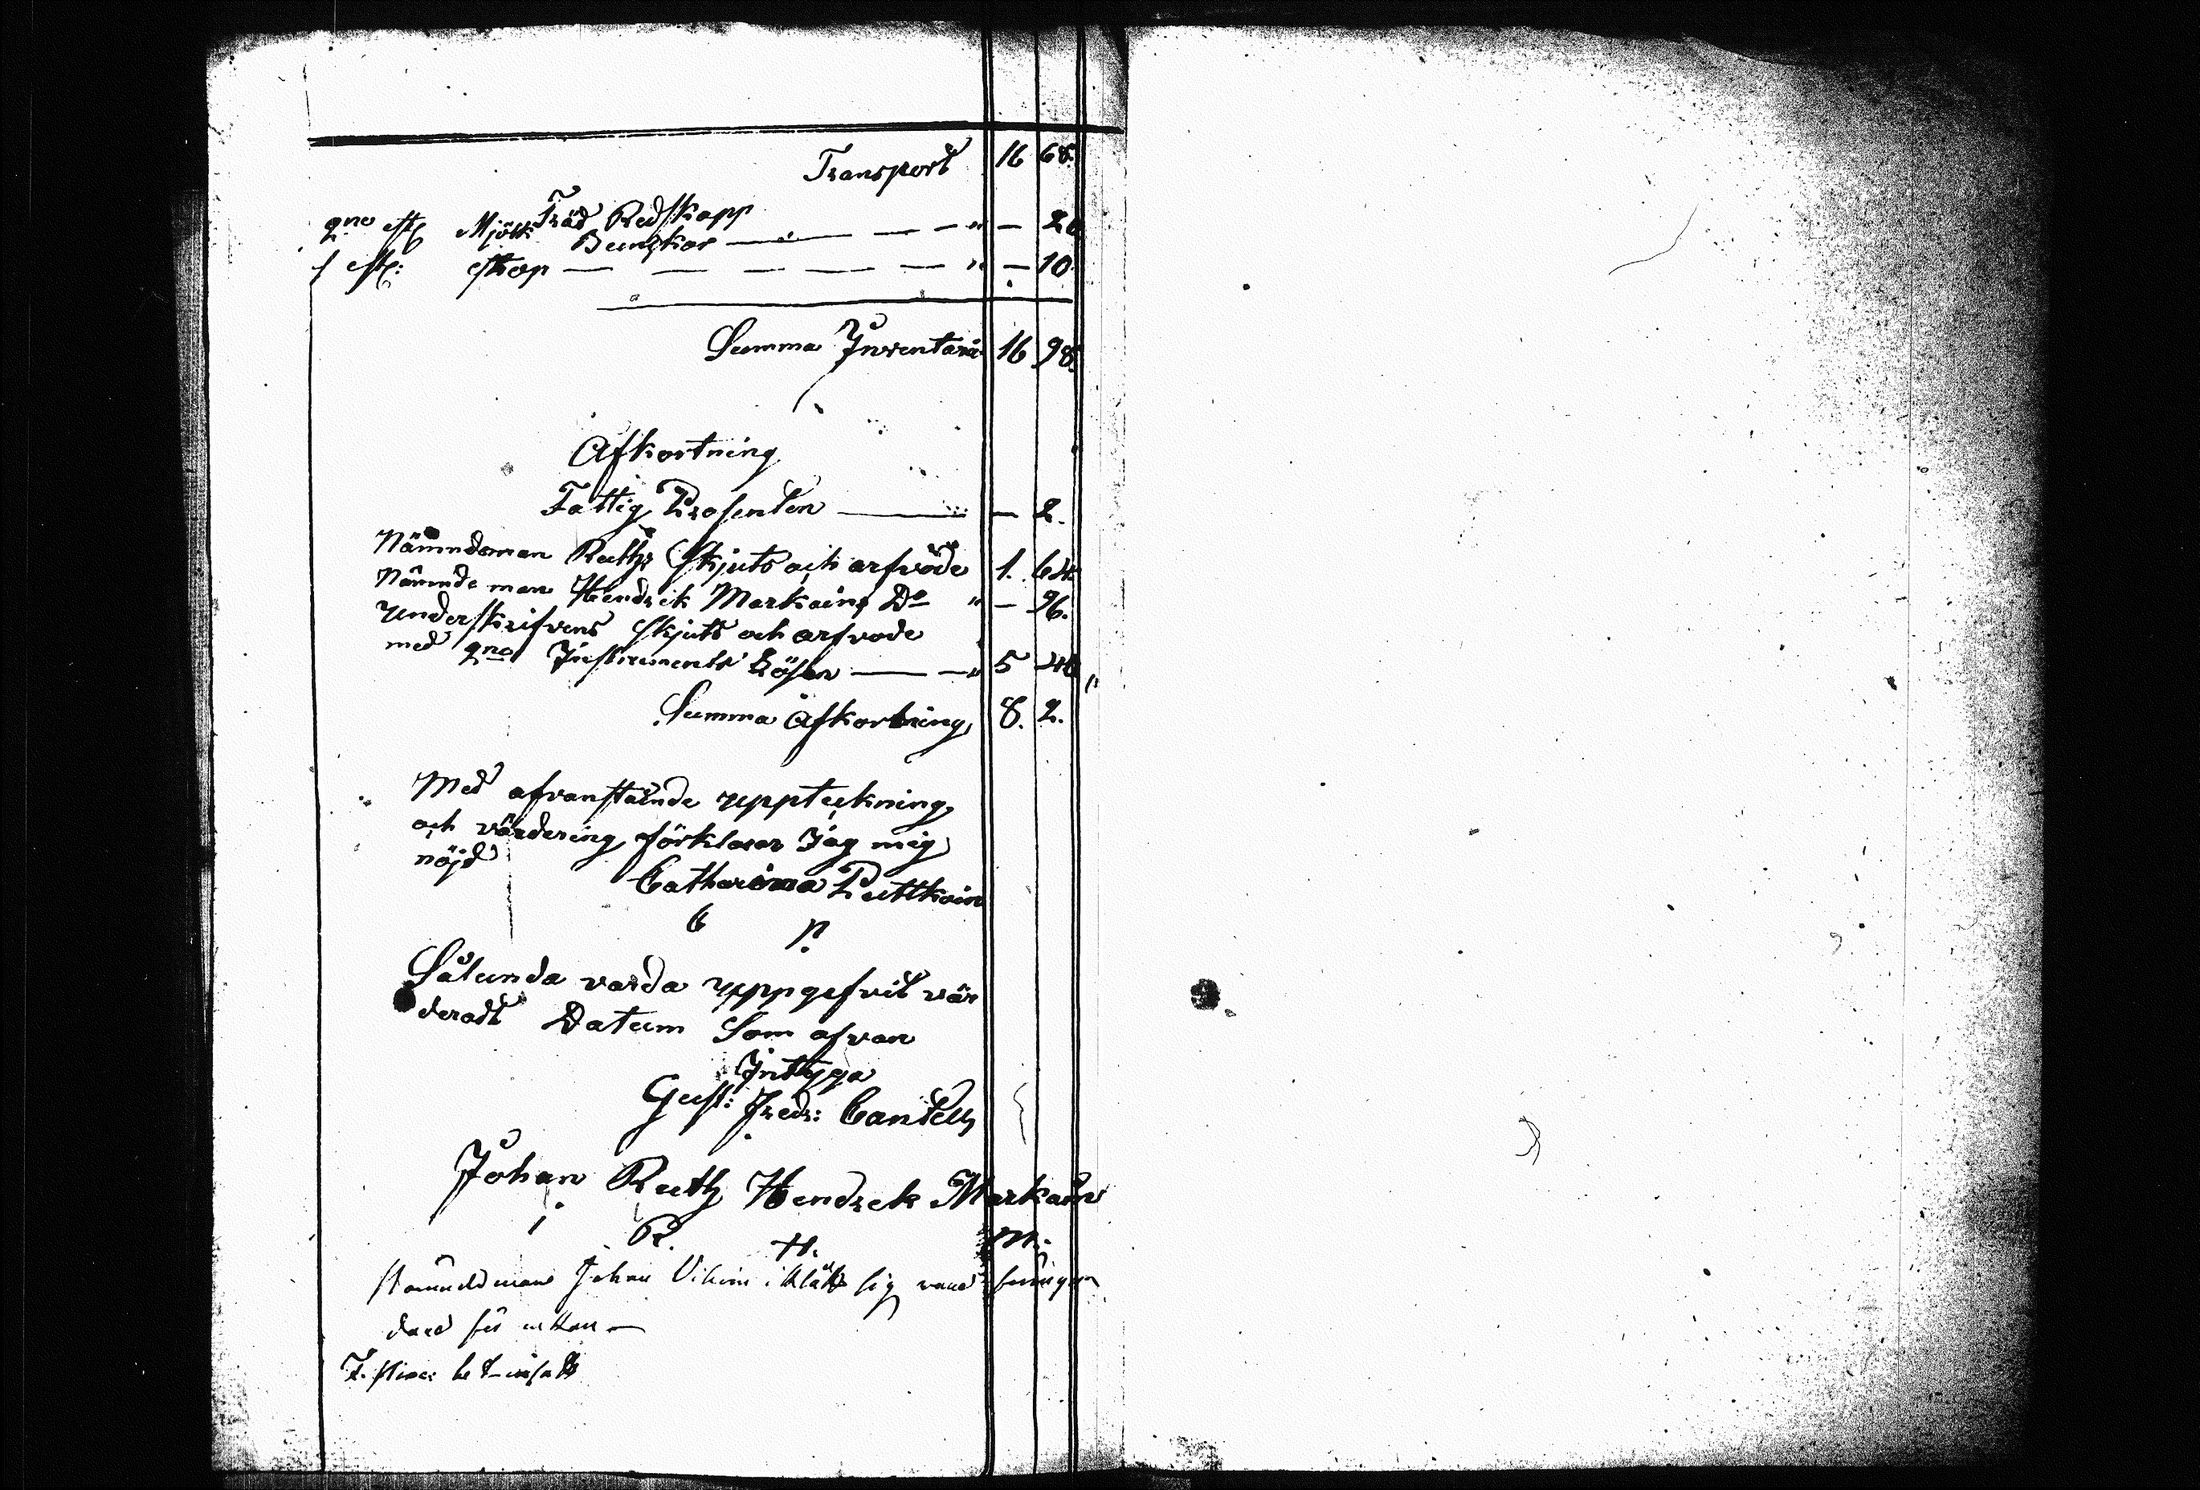 Transport 16 68.
Träd Redskapp
2ne st. Mjölk Bunkar — — — " — 20
1 st: stop — — — — — " — 10
Summa Inventari 16 98.
Afkortning
Fattig Prosenten — — 2.
Nämndeman Ruths Skjuts och arfvode 1. 64.
Nämnde man Hendrik Markain Do " — 96.
Underskrifvens Skjuts och arfvode
med 2ne Instruments Lösen — — " 5 40
Summa Afkortning 8. 2.
Med afvanstående uppteckning
och värdering förklarar Jag mig
nöjd
Catharina Puttkoin
C P.
Sålunda varda uppgefvit vär
deradt Datum Som afvan
Intyga
Gust: Fredr: Cantell
Johan Ruth Hendrek Markain
i R. H. M.
Johan sig
för